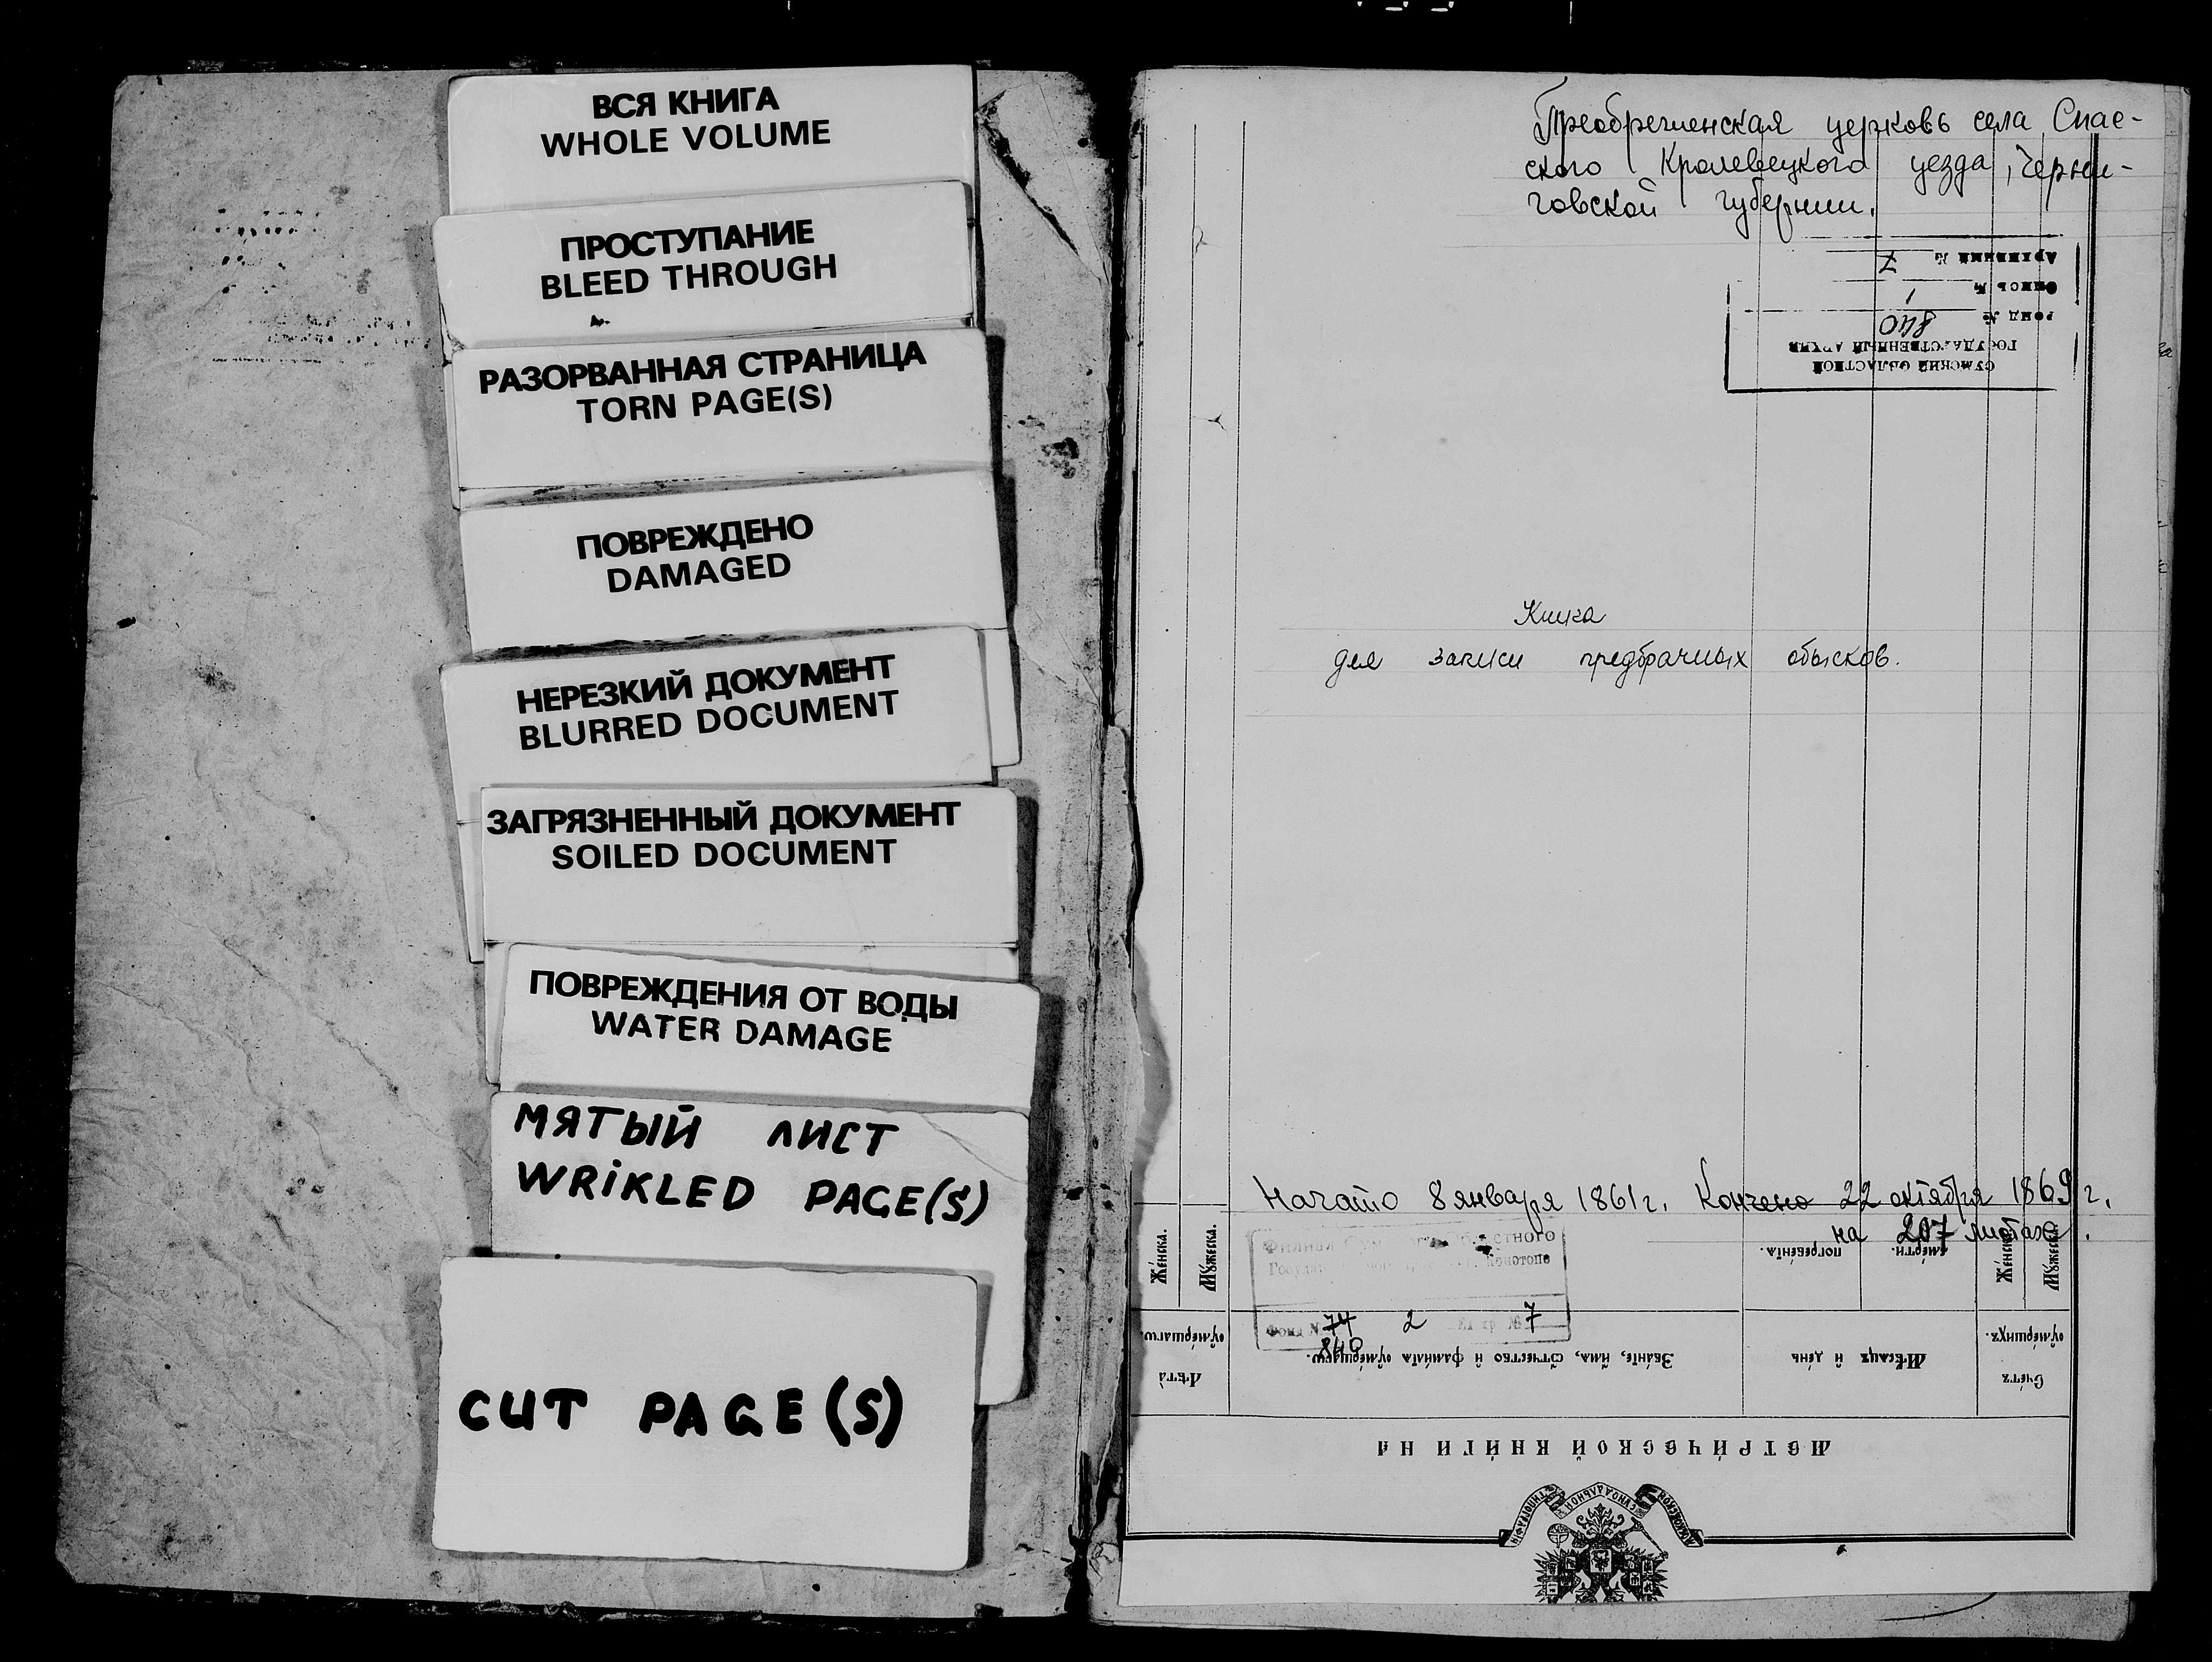 ВСЯ КНИГА
WHOLE VOLUME
ПРОСТУПАНИЕ
BLEED THROUGH
РАЗОРВАННАЯ СТРАНИЦА
TORN PAGE(S)
ПОВРЕЖДЕНО
DAMAGED
НЕРЕЗКИЙ ДОКУМЕНТ
BLURRED DOCUMENT
ЗАГРЯЗНЕННЫЙ ДОКУМЕНТ
SOILED DOCUMENT
ПОВРЕЖДЕНИЯ ОТ ВОДЫ
WATER DAMAGE
МЯТЫЙ ЛИСТ
WRIKLED PAGE(S)
CUT PAGE(S)
церковь села Спас-
ского Кролевецкого уезда, Черни-
говской губернии.
СУМСКИЙ ОБЛАСТНОЙ
ГОСУДАРСТВЕННЫЙ АРХИВ
ФОНД № 840
Опись № 1
Архивный № 7
Книга
для записи предбрачных обысков.
Начато 8 января 1861 г. Кончено 22 октября 1869 г.
на 207 листах.
Филиал Областного
Конотопе
Фонд № 74 2 7
840
Счетъ
оумершихъ.
Мужеска.
Женска.
Мѣсяцъ и день
смерти.
погребенія.
Званіе, имя, отчество и фамилія оумершагw.
Лѣта
оумершагw
Мужеска.
Женска.
МЕТРИЧЕСКОЙ КНИГИ НА
МОСКОВСКОЙ СѴНОДАЛЬНОЙ ТИПОГРАФІИ